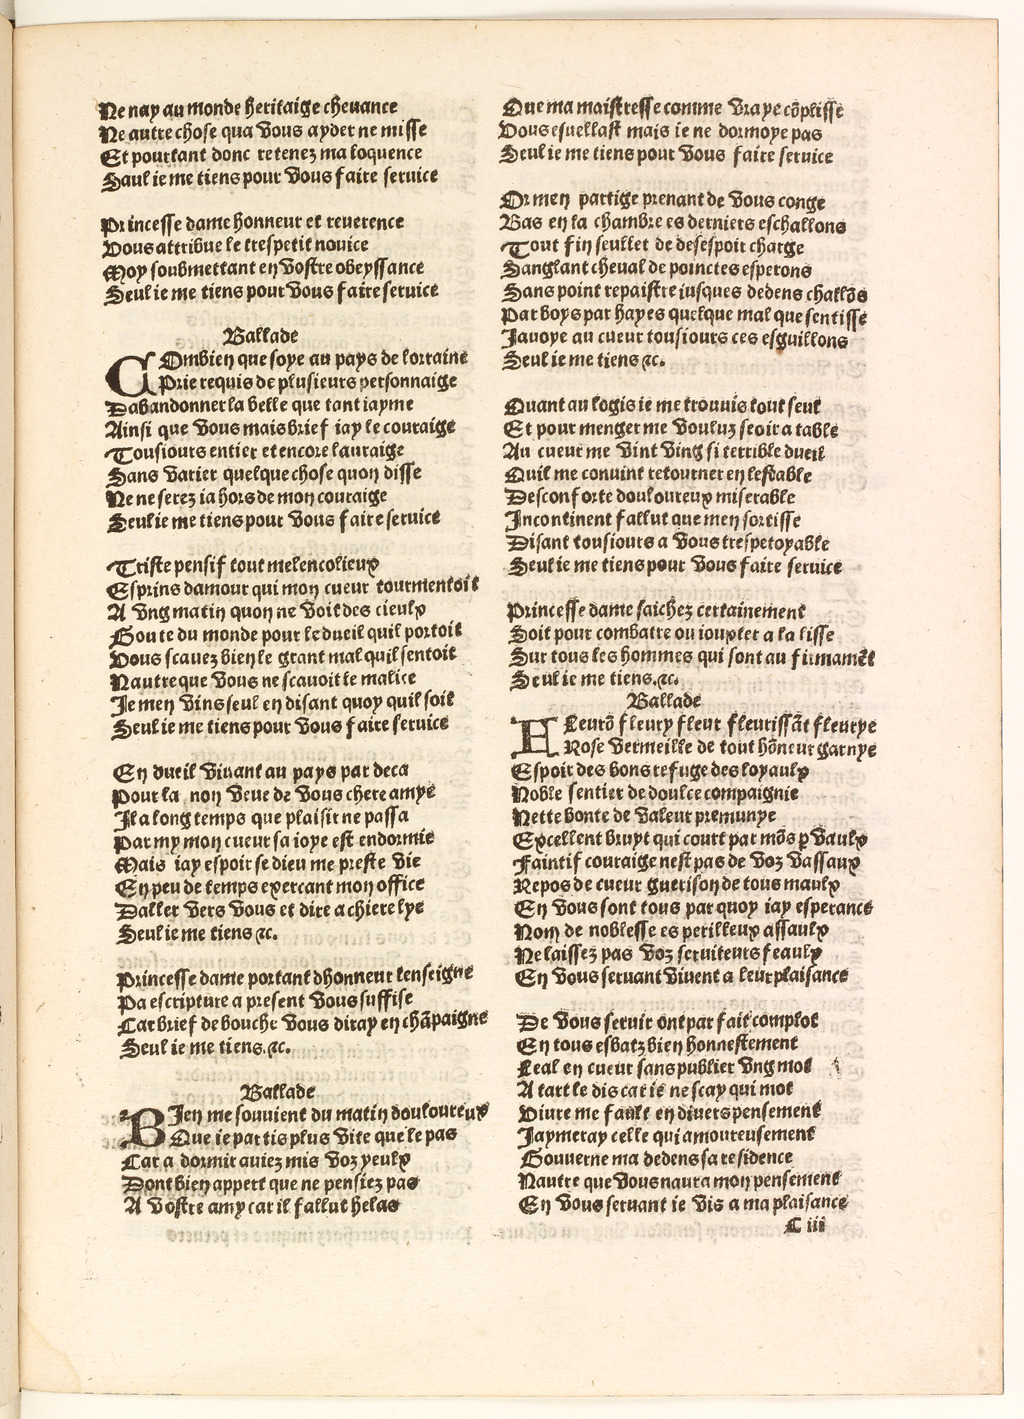 Ne nay au monde heritaige cheuance
Ne autre chose qua vous ayder ne misse
Et pourtant donc retenez ma loquence
Saul ie me tiens pour vous faire seruice
Princesse dame honneur et reuerence
Vous attribue le trespetit nouice
Moy soubmettant en vostre obeyssance
Seul ie me tiens pour vous faire seruice
Ballade
COmbien que soye au pays de lorraine
Prie requis de plusieurs personnaige
Dabandonner la belle que tant iayme
Ainsi que vous mais brief iay le couraige
Tousiours entier et encore lauraige
Sans varier quelque chose quon disse
Ne ne serez ia hors de mon couraige
Seul ie me tiens pour vous faire seruice
Triste pensif tout melencolieux
Esprins damour qui mon cueur tourmentoit
A vng matin quon ne voit des cieulx
Goute du monde pour le dueil quil portoit
Vous scauez bien le grant mal quil sentoit
Nautre que vous ne scauoit le malice
Je men vins seul en disant quoy quil soit
Seul ie me tiens pour vous faire seruice
En dueil viuant au pays par deca
Pour la non veue de vous chere amye
Il a long temps que plaisir ne passa
Par my mon cueur sa ioye est endormie
Mais iay espoir se dieu me preste vie
En peu de temps exercant mon office
Daller vers vous et dire a chiere lye
Seul ie me tiens ⁊c.
Princesse dame portant dhonneur lenseigne
Pa escripture a present vous suffise
Car brief de bouche vous diray en chãpaigne
Seul ie me tiens.⁊c.
Ballade
BJen me souuient du matin douloureux
Que ie partis plus vite que le pas
Car a dormir auiez mis voz yeulx
Dont bien appert que ne pensiez pas
A vostre amy car il fallut helas
Que ma maistresse comme vraye cõplisse
Vous esueillast mais ie ne dormoye pas
Seul ie me tiens pour vous faire seruice
Or men partige prenant de vous conge
Bas en la chambre es derniers eschallons
Tout fin seullet de desespoir charge
Sanglant cheual de poinctes esperons
Sans point repaistre iusques dedens challõs
Par boys par hayes quelque mal que sentisse
Jauoye au cueur tousiours ces esguillons
Seul ie me tiens ⁊c.
Quant au logis ie me trouuis tout seul
Et pour menger me vouluz seoir a table
Au cueur me vint vng si terrible dueil
Quil me conuint retourner en lestable
Desconforte douloureux miserable
Incontinent fallut que men sortisse
Disant tousiours a vous trespetoyable
Seul ie me tiens pour vous faire seruice
Princesse dame saichez certainement
Soit pour combatre ou iouxter a la lisse
Sur tous les hommes qui sont au firmamẽt
Seul ie me tiens.⁊c.
Ballade
FLeurõ fleury fleur fleurissãt fleurye
Rose vermeille de tout hõneur garnye
Espoir des bons refuge des loyaulx
Noble sentier de doulce compaignie
Nette bonte de valeur premunye
Excellent bruyt qui court par mõs ꝑ vaulx
Faintif couraige nest pas de voz vassaux
Repos de cueur guerison de tous maulx
En vous sont tous par quoy iay esperance
Nom de noblesse es perilleux assaulx
Ne laissez pas voz seruiteurs feaulx
En vous seruant viuent a leur plaisance
De vous seruir ont par fait complot
En tous esbatz bien honnestement
Leal en cueur sans publier vng mot
A tart le dis car ie ne scay qui mot
Viure me fault en diuers pensement
Jaymeray celle qui amoureusement
Gouuerne ma dedens sa residence
Nautre que vous naura mon pensement
En vous seruant ie vis a ma plaisance
C iii